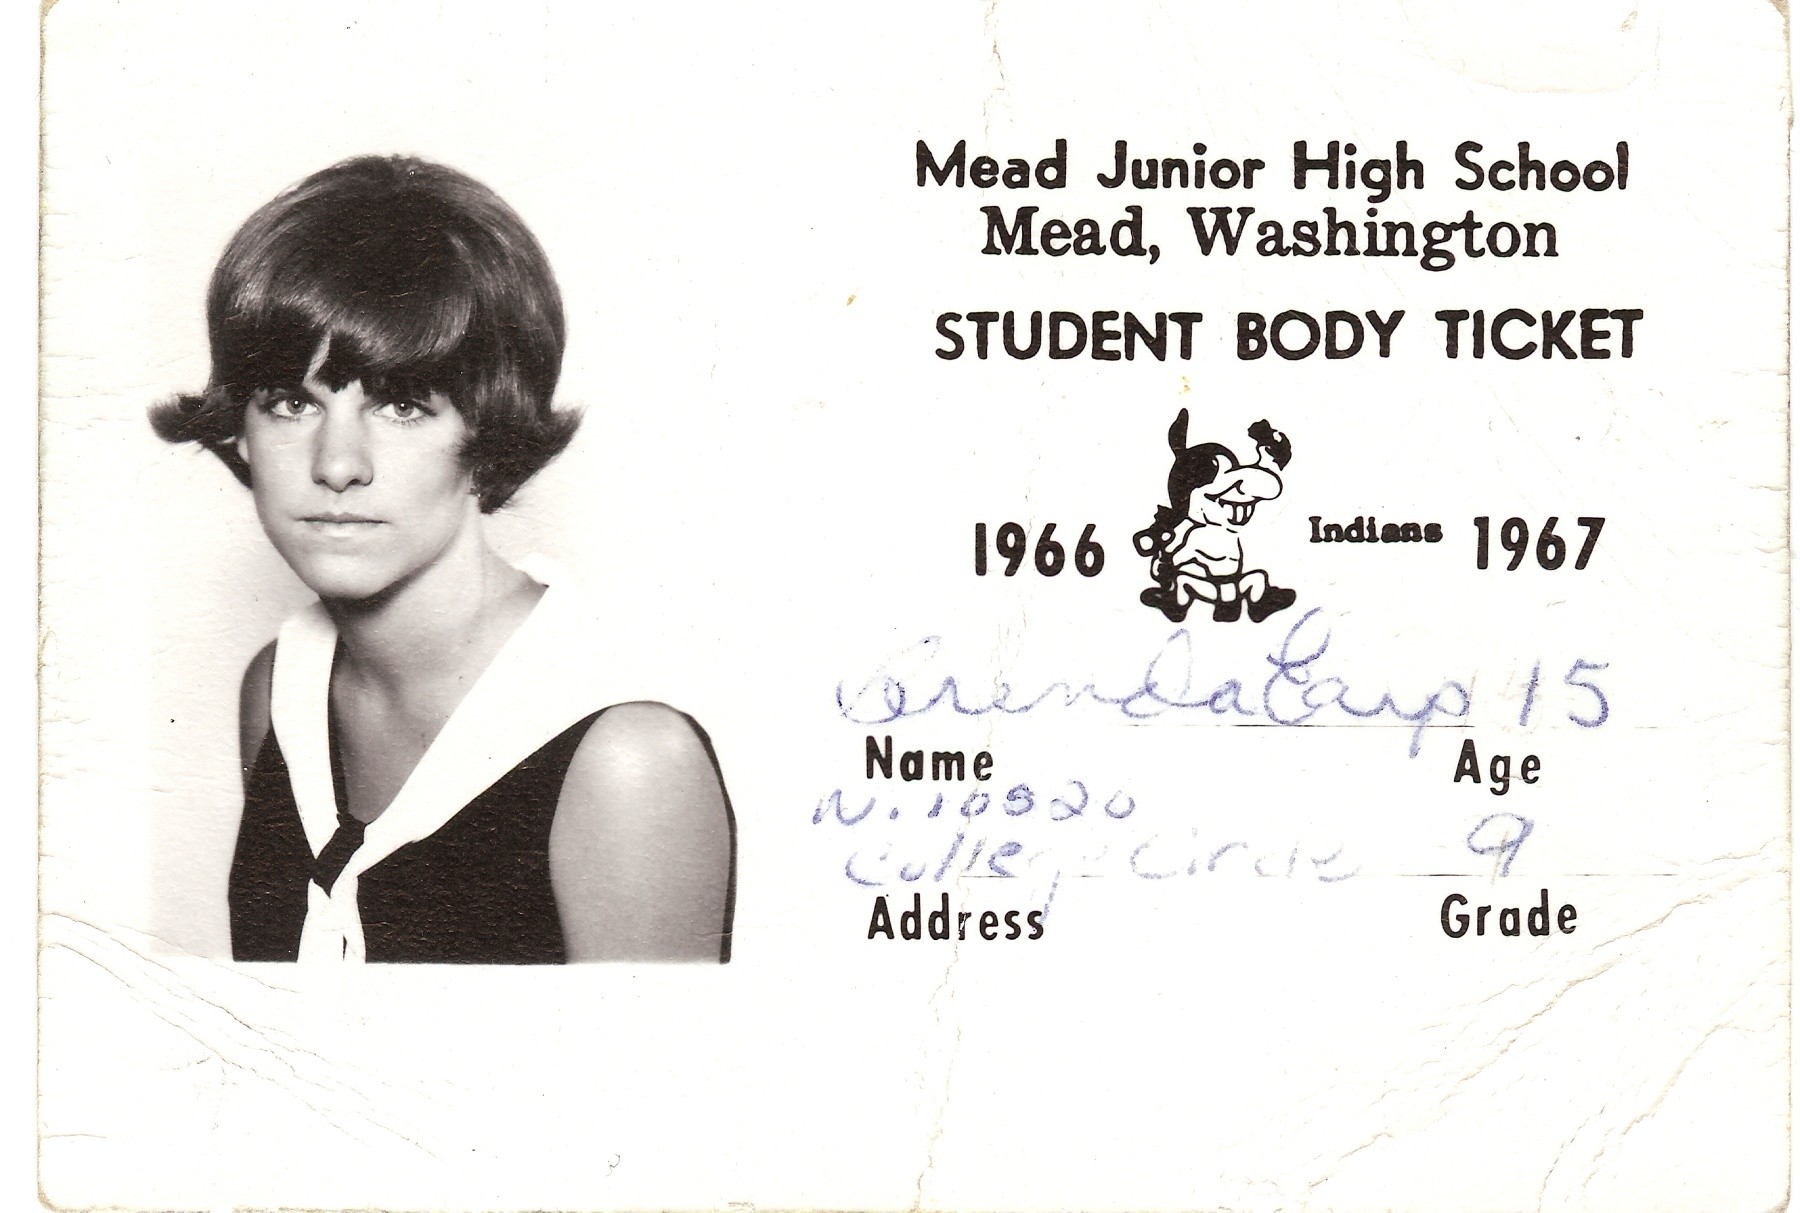 Mead Junior High School
Mead, Washington
STUDENT BODY TICKET
1966 Indians 1967
Brenda Earp 15
Name Age
N. 10320
College Circle 9
Address Grade